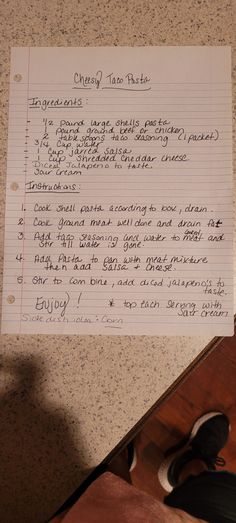 Cheesy Taco Pasta
Ingredients:
- 1/2 pound large shells pasta
- pound ground beef or chicken
- 2 table spoons taco seasoning (1 packet)
- 3/4 cup water
- 1 cup jarred salsa
- 1 cup shredded cheddar cheese
Diced Jalapeño to taste
Sour Cream
Instructions:
1. Cook shell pasta according to box, drain.
2. Cook ground meat well done and drain fat
3. Add taco seasoning and water to meat and
Stir till water is gone.
4. Add Pasta to pan with meat mixture
then add salsa + cheese.
5. Stir to combine, add diced jalapeño's to
taste.
Enjoy! * top each serving with
Sour cream
Side dish idea: Corn